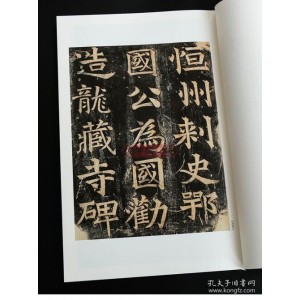 恒州刺史鄂
國公為國勸
造龍藏寺碑
孔夫子旧书网